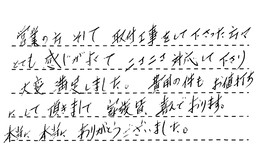 営業の方 そして 取付工事をして下さった方々
とても 感じがよくて ニコニコ 対応して下さり
大変 満足しました。 費用の件も お値打ち
にして 頂きまして 家族皆 喜んでおります。
本当に 本当に ありがとうございました。